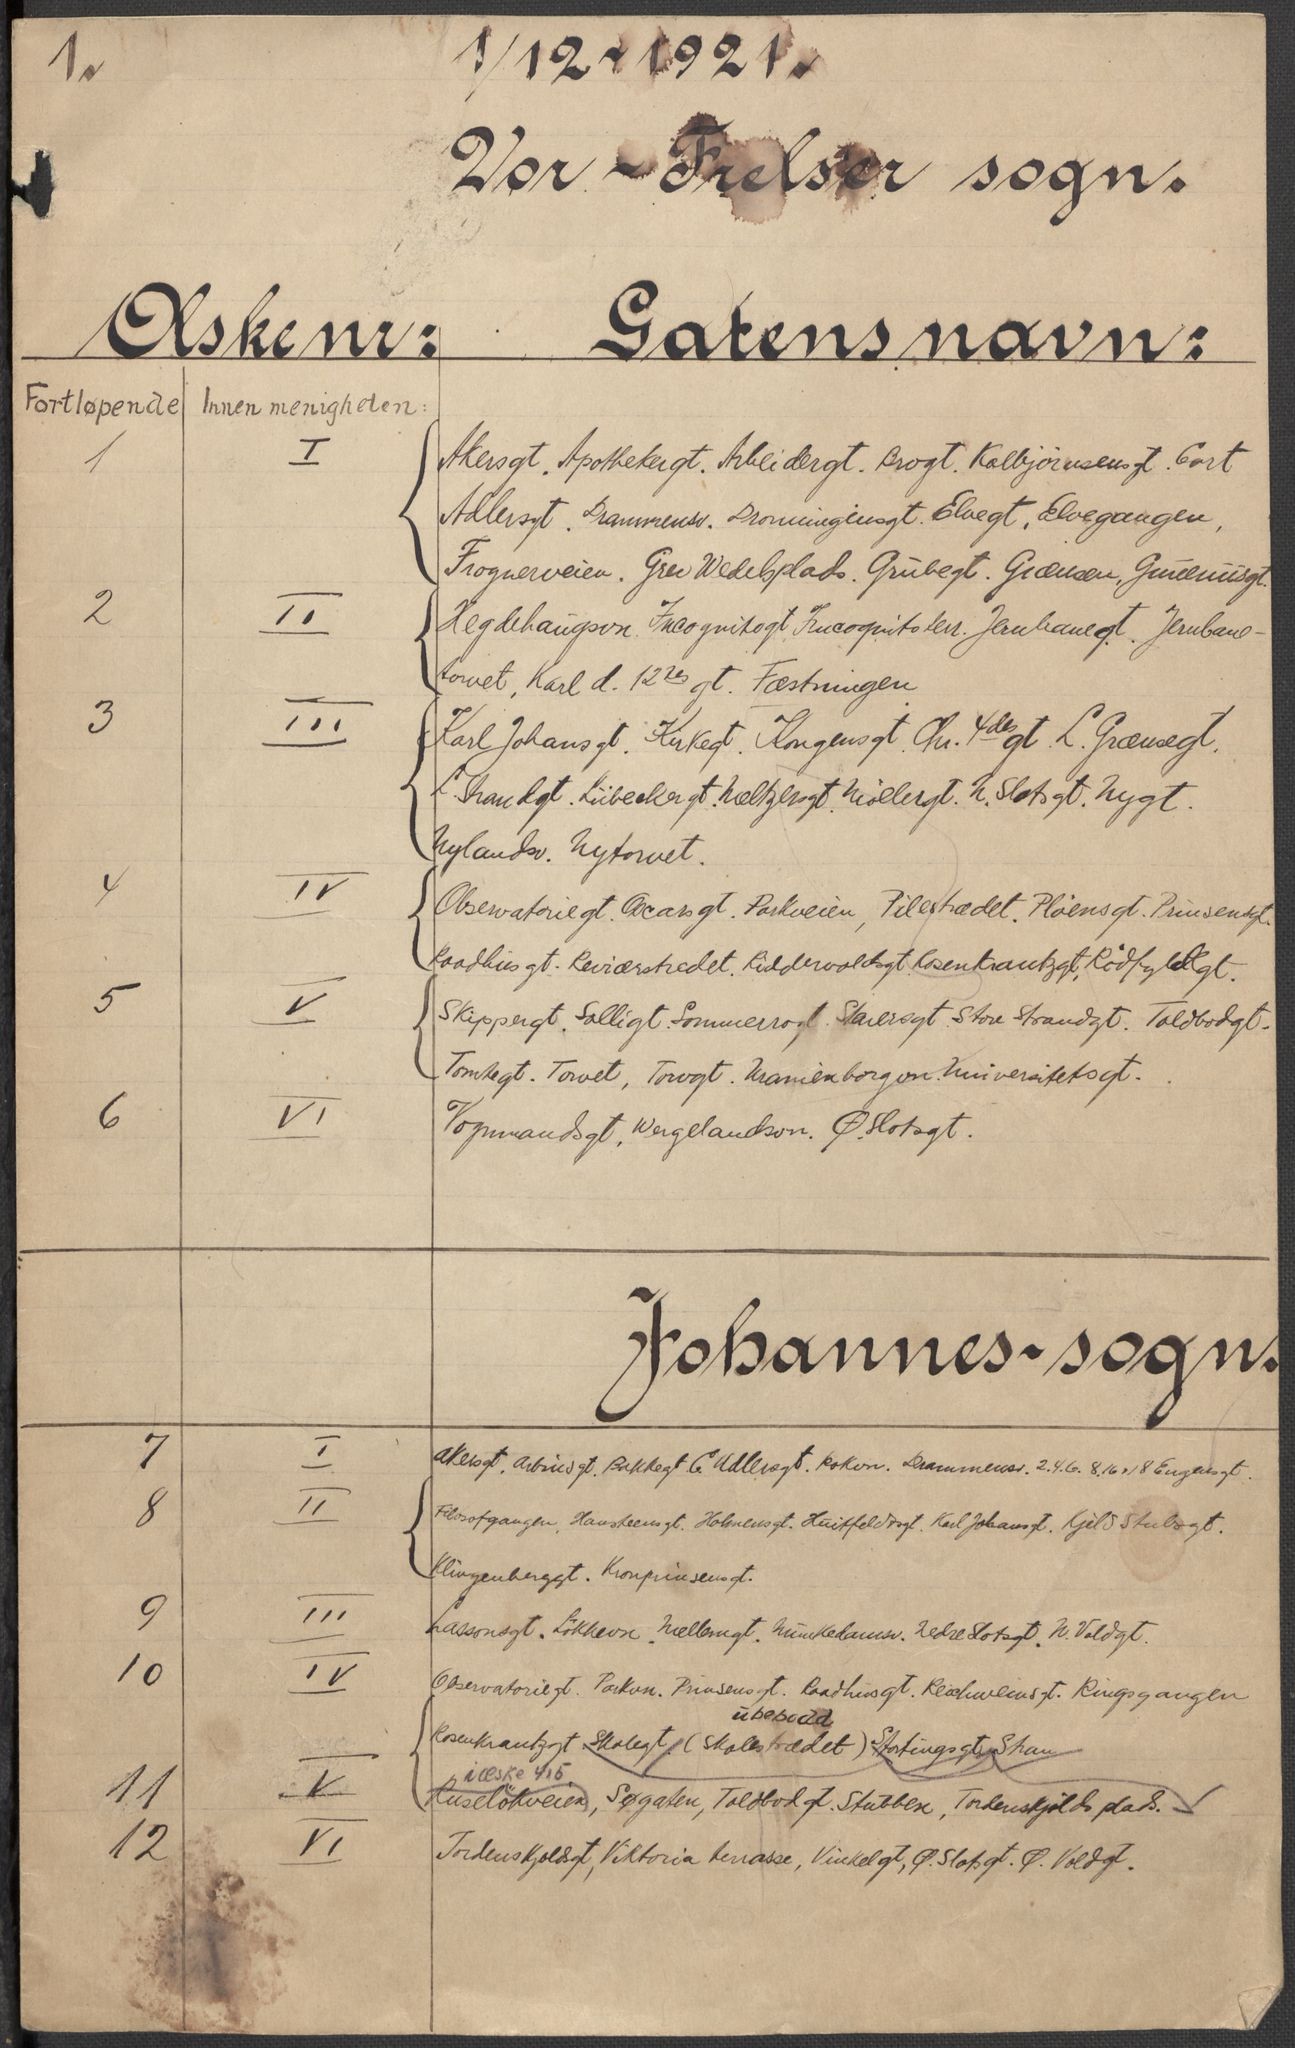 1.
1/12 - 1921.
Vor - Frelser sogn.
Æskenr: Gatensnavn:
Fortløpende Innen menigheten:
1 I Akersgt. Apothekergt. Arbeidergt. Brogt. Kalbjörnsensgt. Cort
Adlersgt. Drammensv. Dronningensgt. Elvegt, Elvegangen,
Frognerveien. Grev Wedelsplads. Grubegt. Grænsen,
2 II Hegdehaugsvn. Incognitogt. Incognito terr. Jernbanegt. Jernbane-
torvet, Karl d. 12tes gt. Fæstningen
3 III Karl Johansgt. Kirkegt. Kongensgt. Chr. 4des gt. L. Grænsegt.
L. Strandgt. Lübeckergt. Meltzersgt. Möllergt. N. Slotsgt. Nygt.
Nylandsv. Nytorvet.
4 IV Observatoriegt. Oscarsgt. Parkveien, Pilestrædet. Plöensgt. Prinsensgt.
Raadhusgt. Reviærstredet. Riddervoldsgt. Rosenkrantzgt, Rödfyldgt.
5 V Skippergt. Solligt. Sommerrogt. Stenersgt. Store Strandgt. Toldbodgt.
Tomtegt. Torvet, Torvgt. Uranienborgvn. Universitetsgt.
6 VI Vognmandsgt, Wergelandsvn. Ø. Slotsgt.
Johannes-sogn.
7 I Akersgt. Arbinsgt. Bakkegt. C. Adlersgt. Dokvn. Drammensv. 2.4.6. 8.16.18 Engensgt.
8 II Filosofgangen, Hansteensgt. Holmensgt. Huitfeldtsgt. Karl Johansgt. Kjeld Stubsgt.
Klingenberggt. Kronprinsensgt.
9 III Lassonsgt. Lökkevn. Mellemgt. Munkedamsv. Nedre Slotsgt. N. Voldgt.
10 IV Observatoriegt. Parkvn. Prinsensgt. Raadhusgt. Reichweinsgt. Ringsgangen
ubebodd
Rosenkrantzgt Skolegt. (Skolestrædet) Stortingsgt. Stran
i æske 415
11 V Ruselökveien, Søgaten, Toldbodgt. Stubben, Tordenskjolds plads.
12 VI Tordenskjoldsgt, Viktoria terrasse, Vinkelgt, Ø. Slotsgt. Ø. Voldgt.